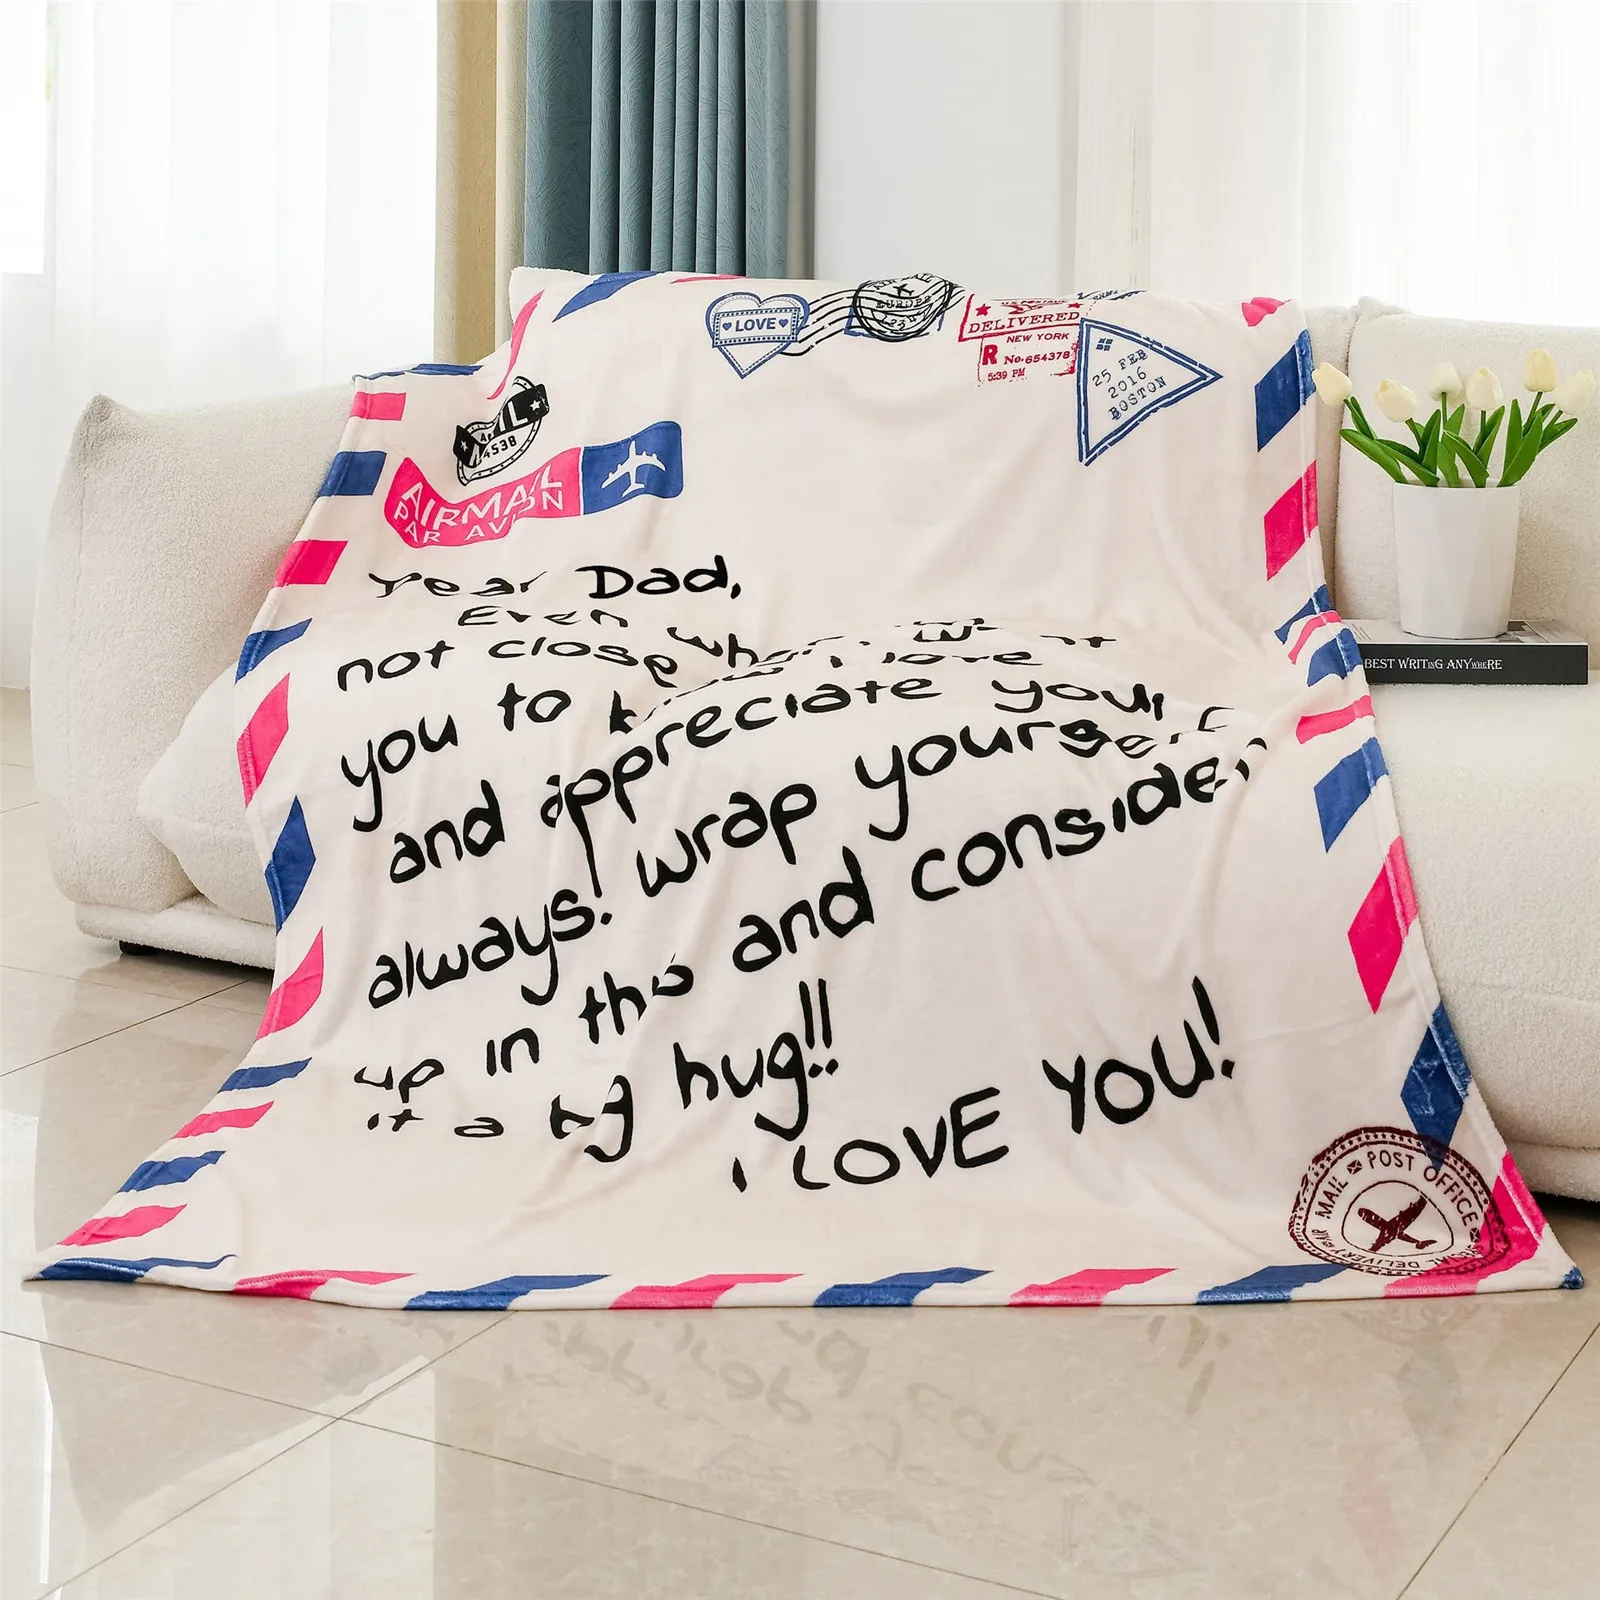 LOVE
EUROPE
DELIVERED
NEW YORK
R No. 654378
5:39 PM
25 FEB
2016
BOSTON
4538
AIRMAIL
PAR AVION
Dad,
Even
not close
you to love
and appreciate your
always! wrap yourself
up in this and consider
it a big hug!!
I LOVE YOU!
BEST WRITING ANYWHERE
MAIL POST OFFICE
DELIVERY